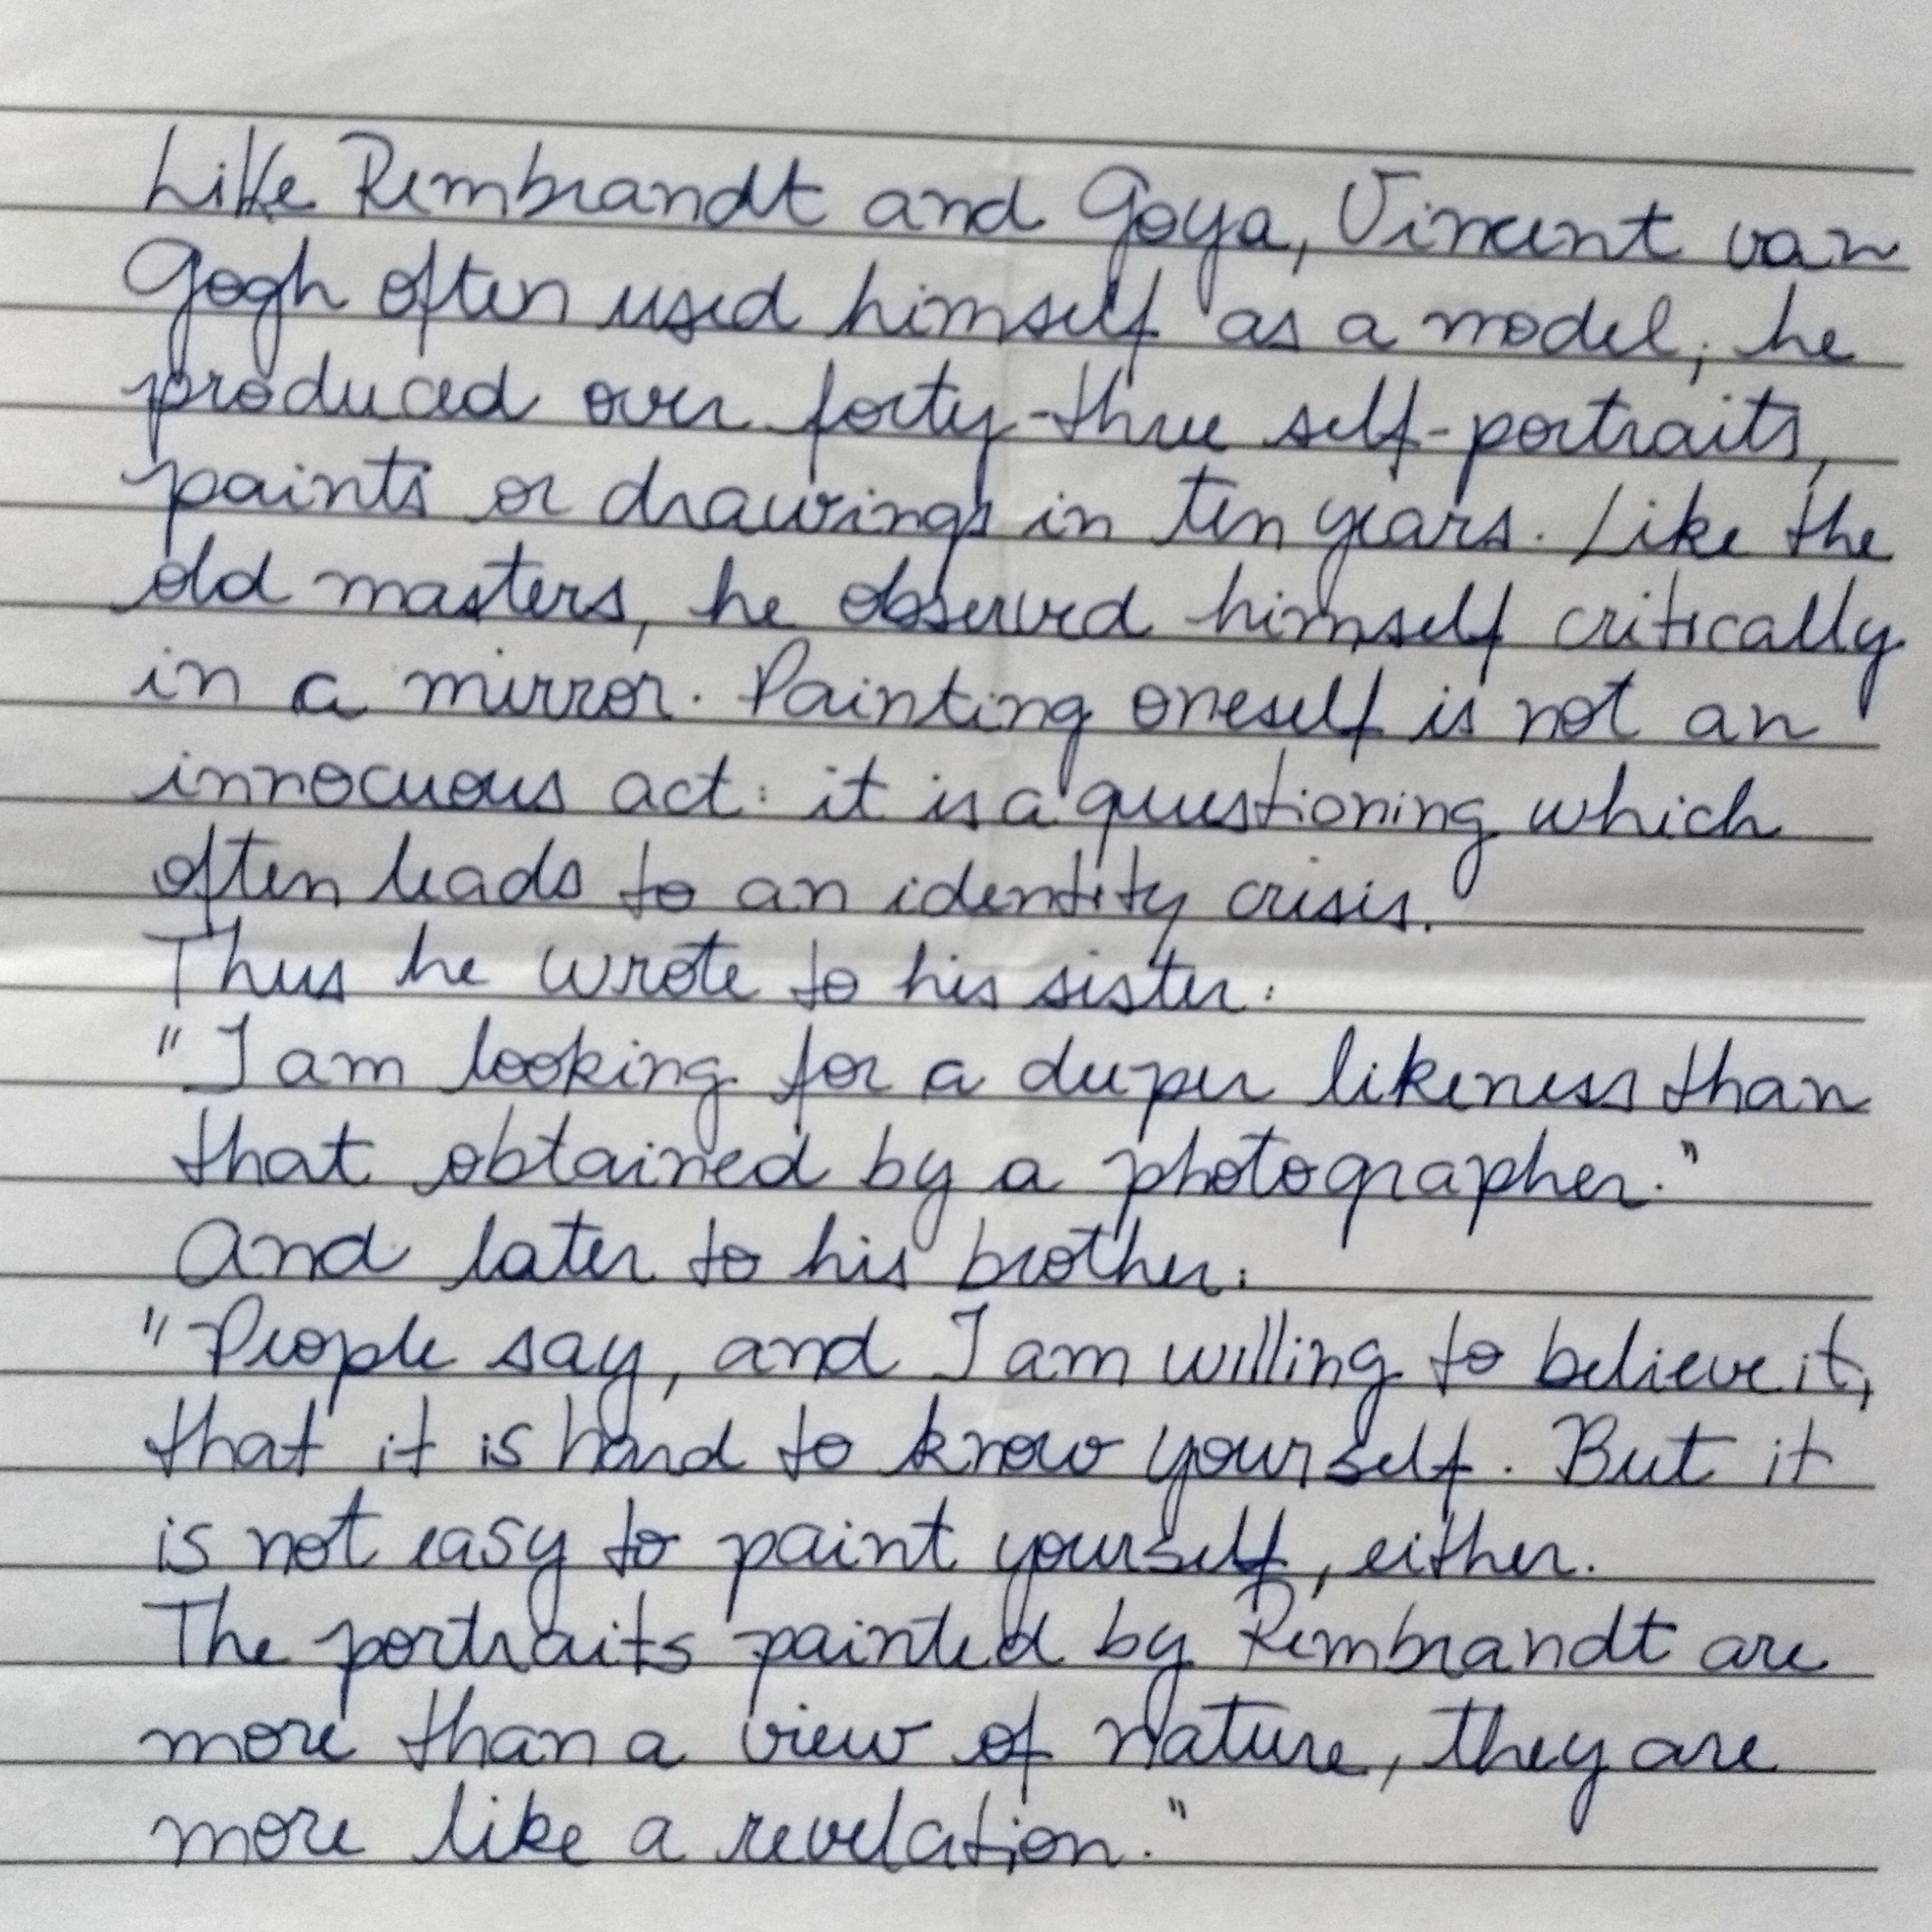 Like Rembrandt and Goya, Vincent van
Gogh often used himself as a model; he
produced over forty-three self-portraits,
paints or drawings in ten years. Like the
old masters, he observed himself critically
in a mirror. Painting oneself is not an
innocuous act: it is a questioning which
often leads to an identity crisis.
Thus he wrote to his sister:
"I am looking for a deeper likeness than
that obtained by a photographer."
And later to his brother:
"People say, and I am willing to believe it,
that it is hard to know yourself. But it
is not easy to paint yourself, either.
The portraits painted by Rembrandt are
more than a view of nature, they are
more like a revelation."